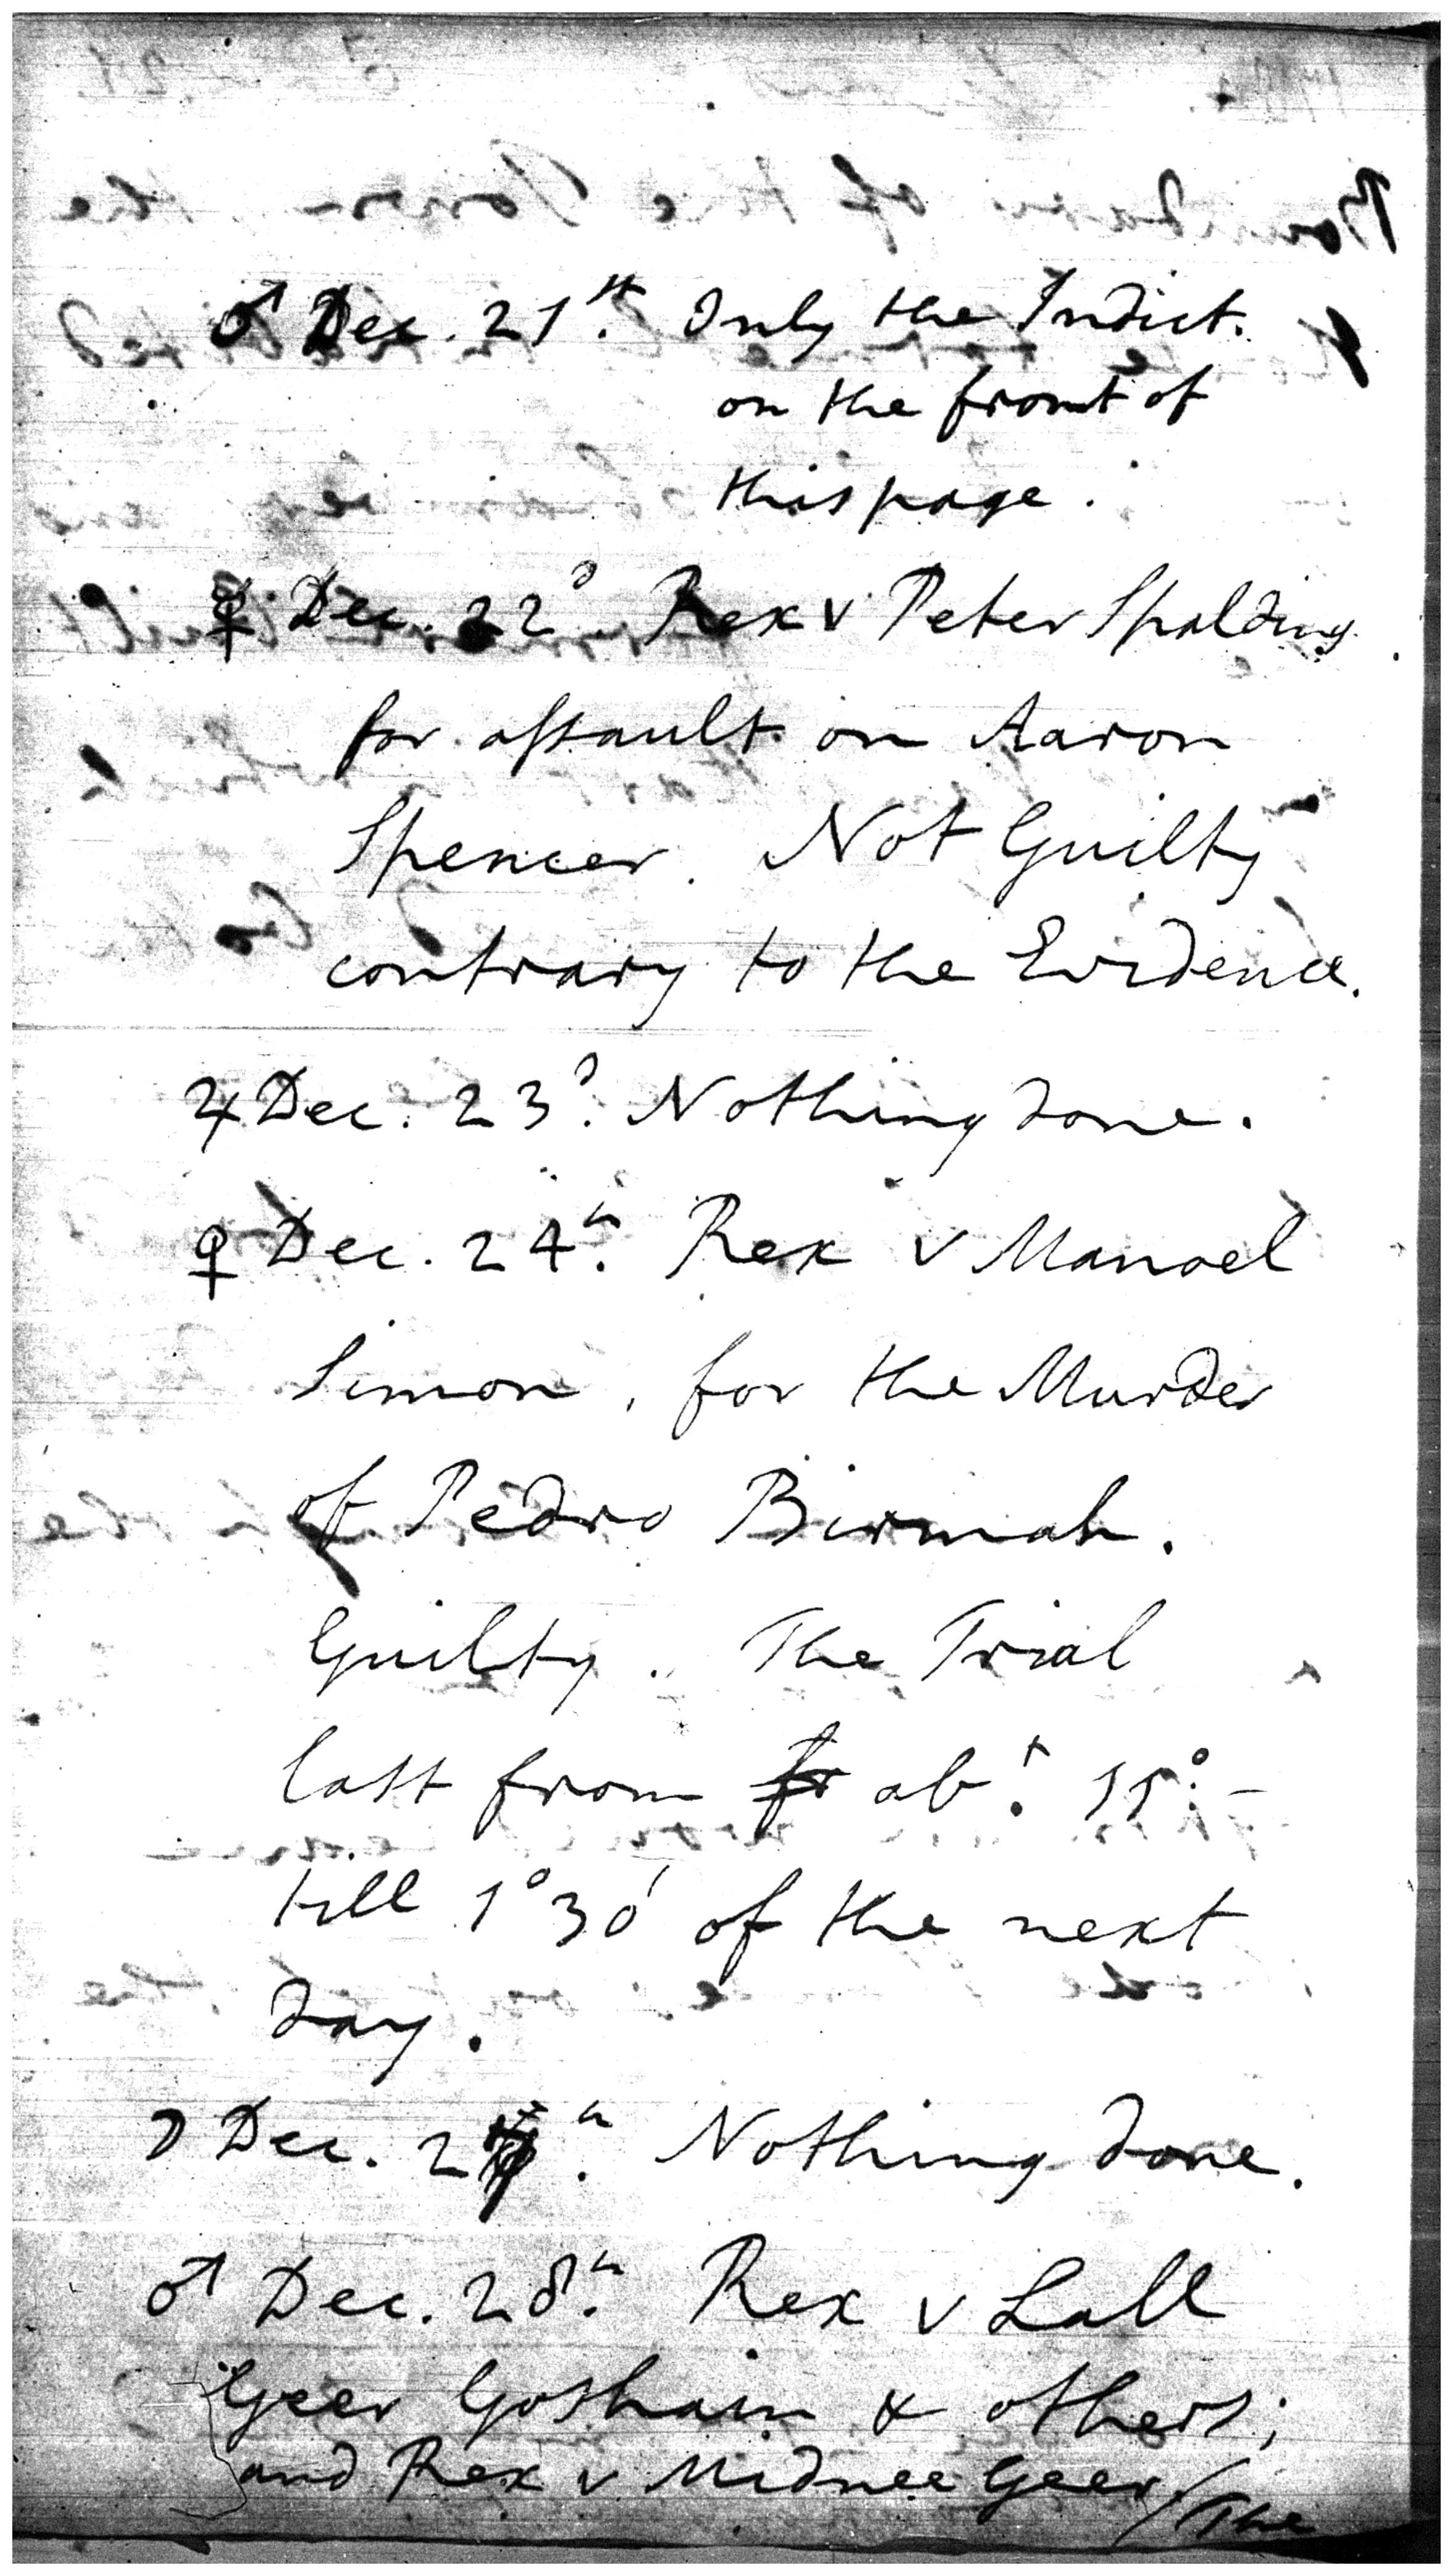 ♂ Dec. 21st. Only the Indict.
on the front of
this page.
☿ Dec. 22d. Rex v Peter Spalding
for assault on Aaron
Spencer. Not Guilty
contrary to the Evidence.
♃ Dec. 23d. Nothing done.
♀ Dec. 24th. Rex v Manoel
Simon, for the Murder
of Pedro Birmah.
Guilty. The Trial
last from abt. 11°. –
till 1° 30' of the next
day.
☽ Dec. 27th. Nothing done.
♂ Dec. 28th. Rex v Lall
Geer Goshain & others;
and Rex v Midnee Geer / The